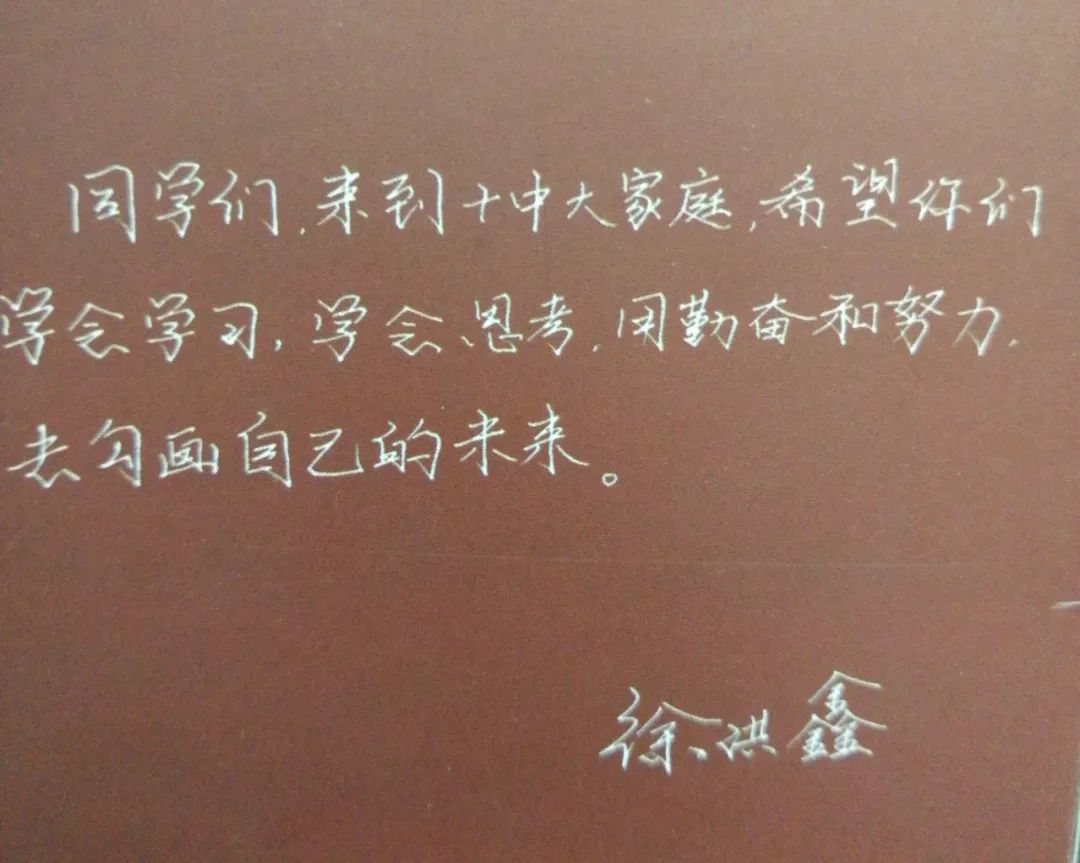 同学们,来到十中大家庭,希望你们
学会学习,学会思考,用勤奋和努力,
去勾画自己的未来。
徐洪鑫